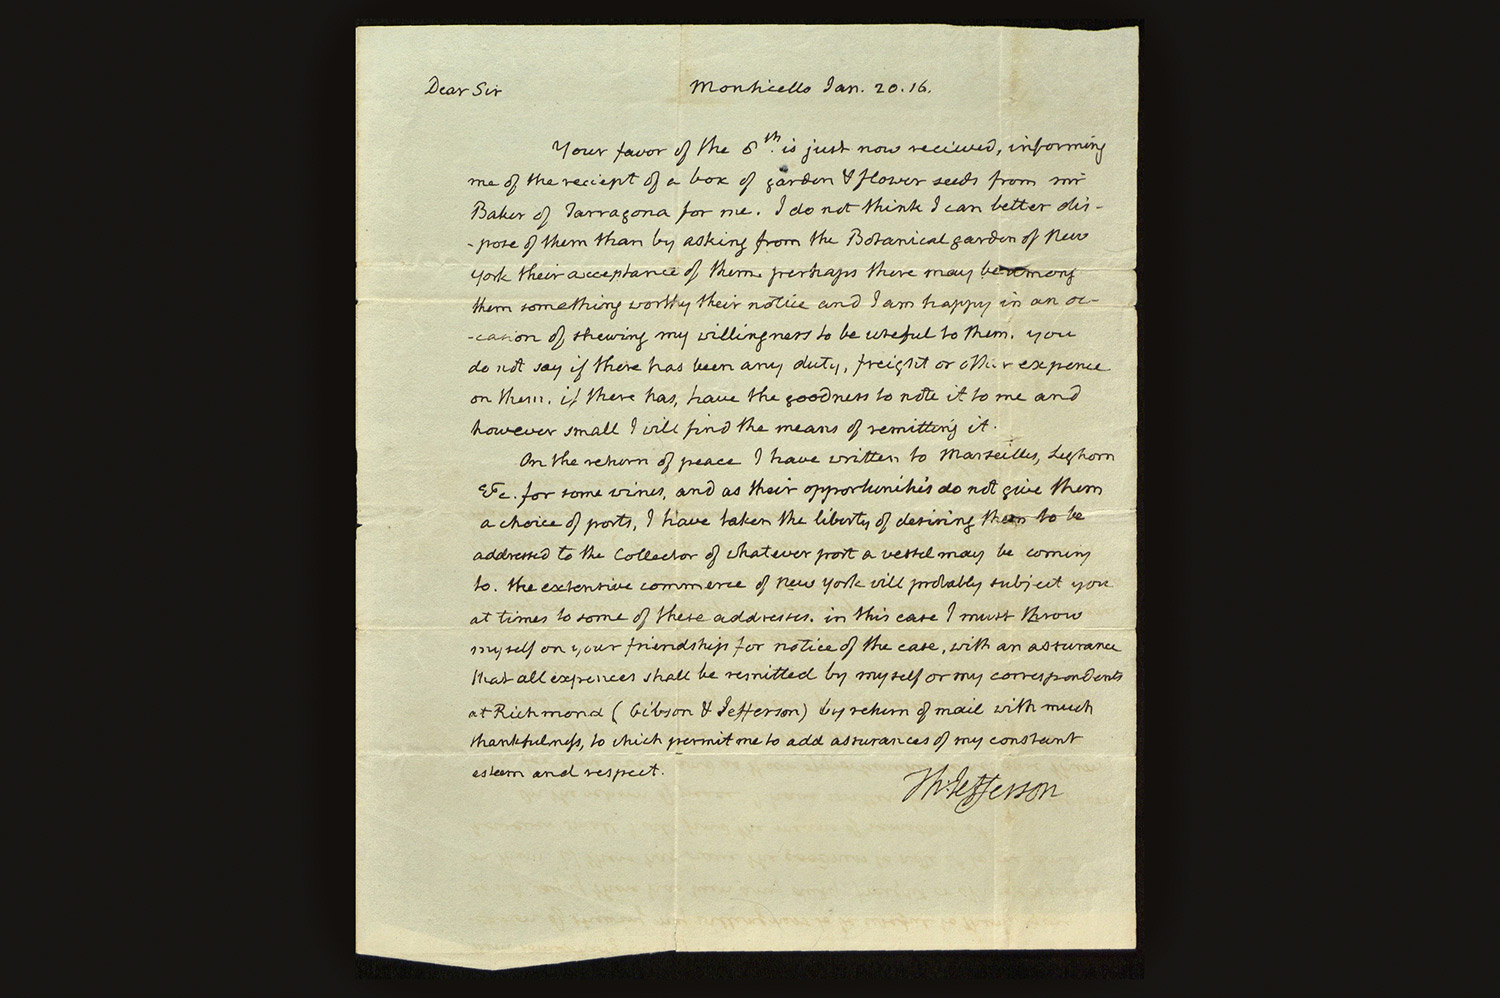 Dear Sir Monticello Jan. 20. 16.
Your favor of the 8th. is just now recieved, informing
me of the reciept of a box of garden & flower seeds from mr
Baker of Tarragona for me. I do not think I can better dis-
-pose of them than by asking from the Botanical garden of New
York their acceptance of them. perhaps there may be among
them something worthy their notice and I am happy in an oc-
-casion of shewing my willingness to be useful to them. you
do not say if there has been any duty, freight or other expence
on them. if there has, have the goodness to note it to me and
however small I will find the means of remitting it.
On the return of peace I have written to Marseilles, Leghorn
&c. for some wines, and as their opportunities do not give them
a choice of ports, I have taken the liberty of desiring them to be
addressed to the Collector of whatever port a vessel may be coming
to. the extensive commerce of New York will probably subject you
at times to some of these addresses. in this case I must throw
myself on your friendship for notice of the case, with an assurance
that all expences shall be remitted by myself or my correspondents
at Richmond (Gibson & Jefferson) by return of mail with much
thankfulness, to which permit me to add assurances of my constant
esteem and respect.
Th: Jefferson